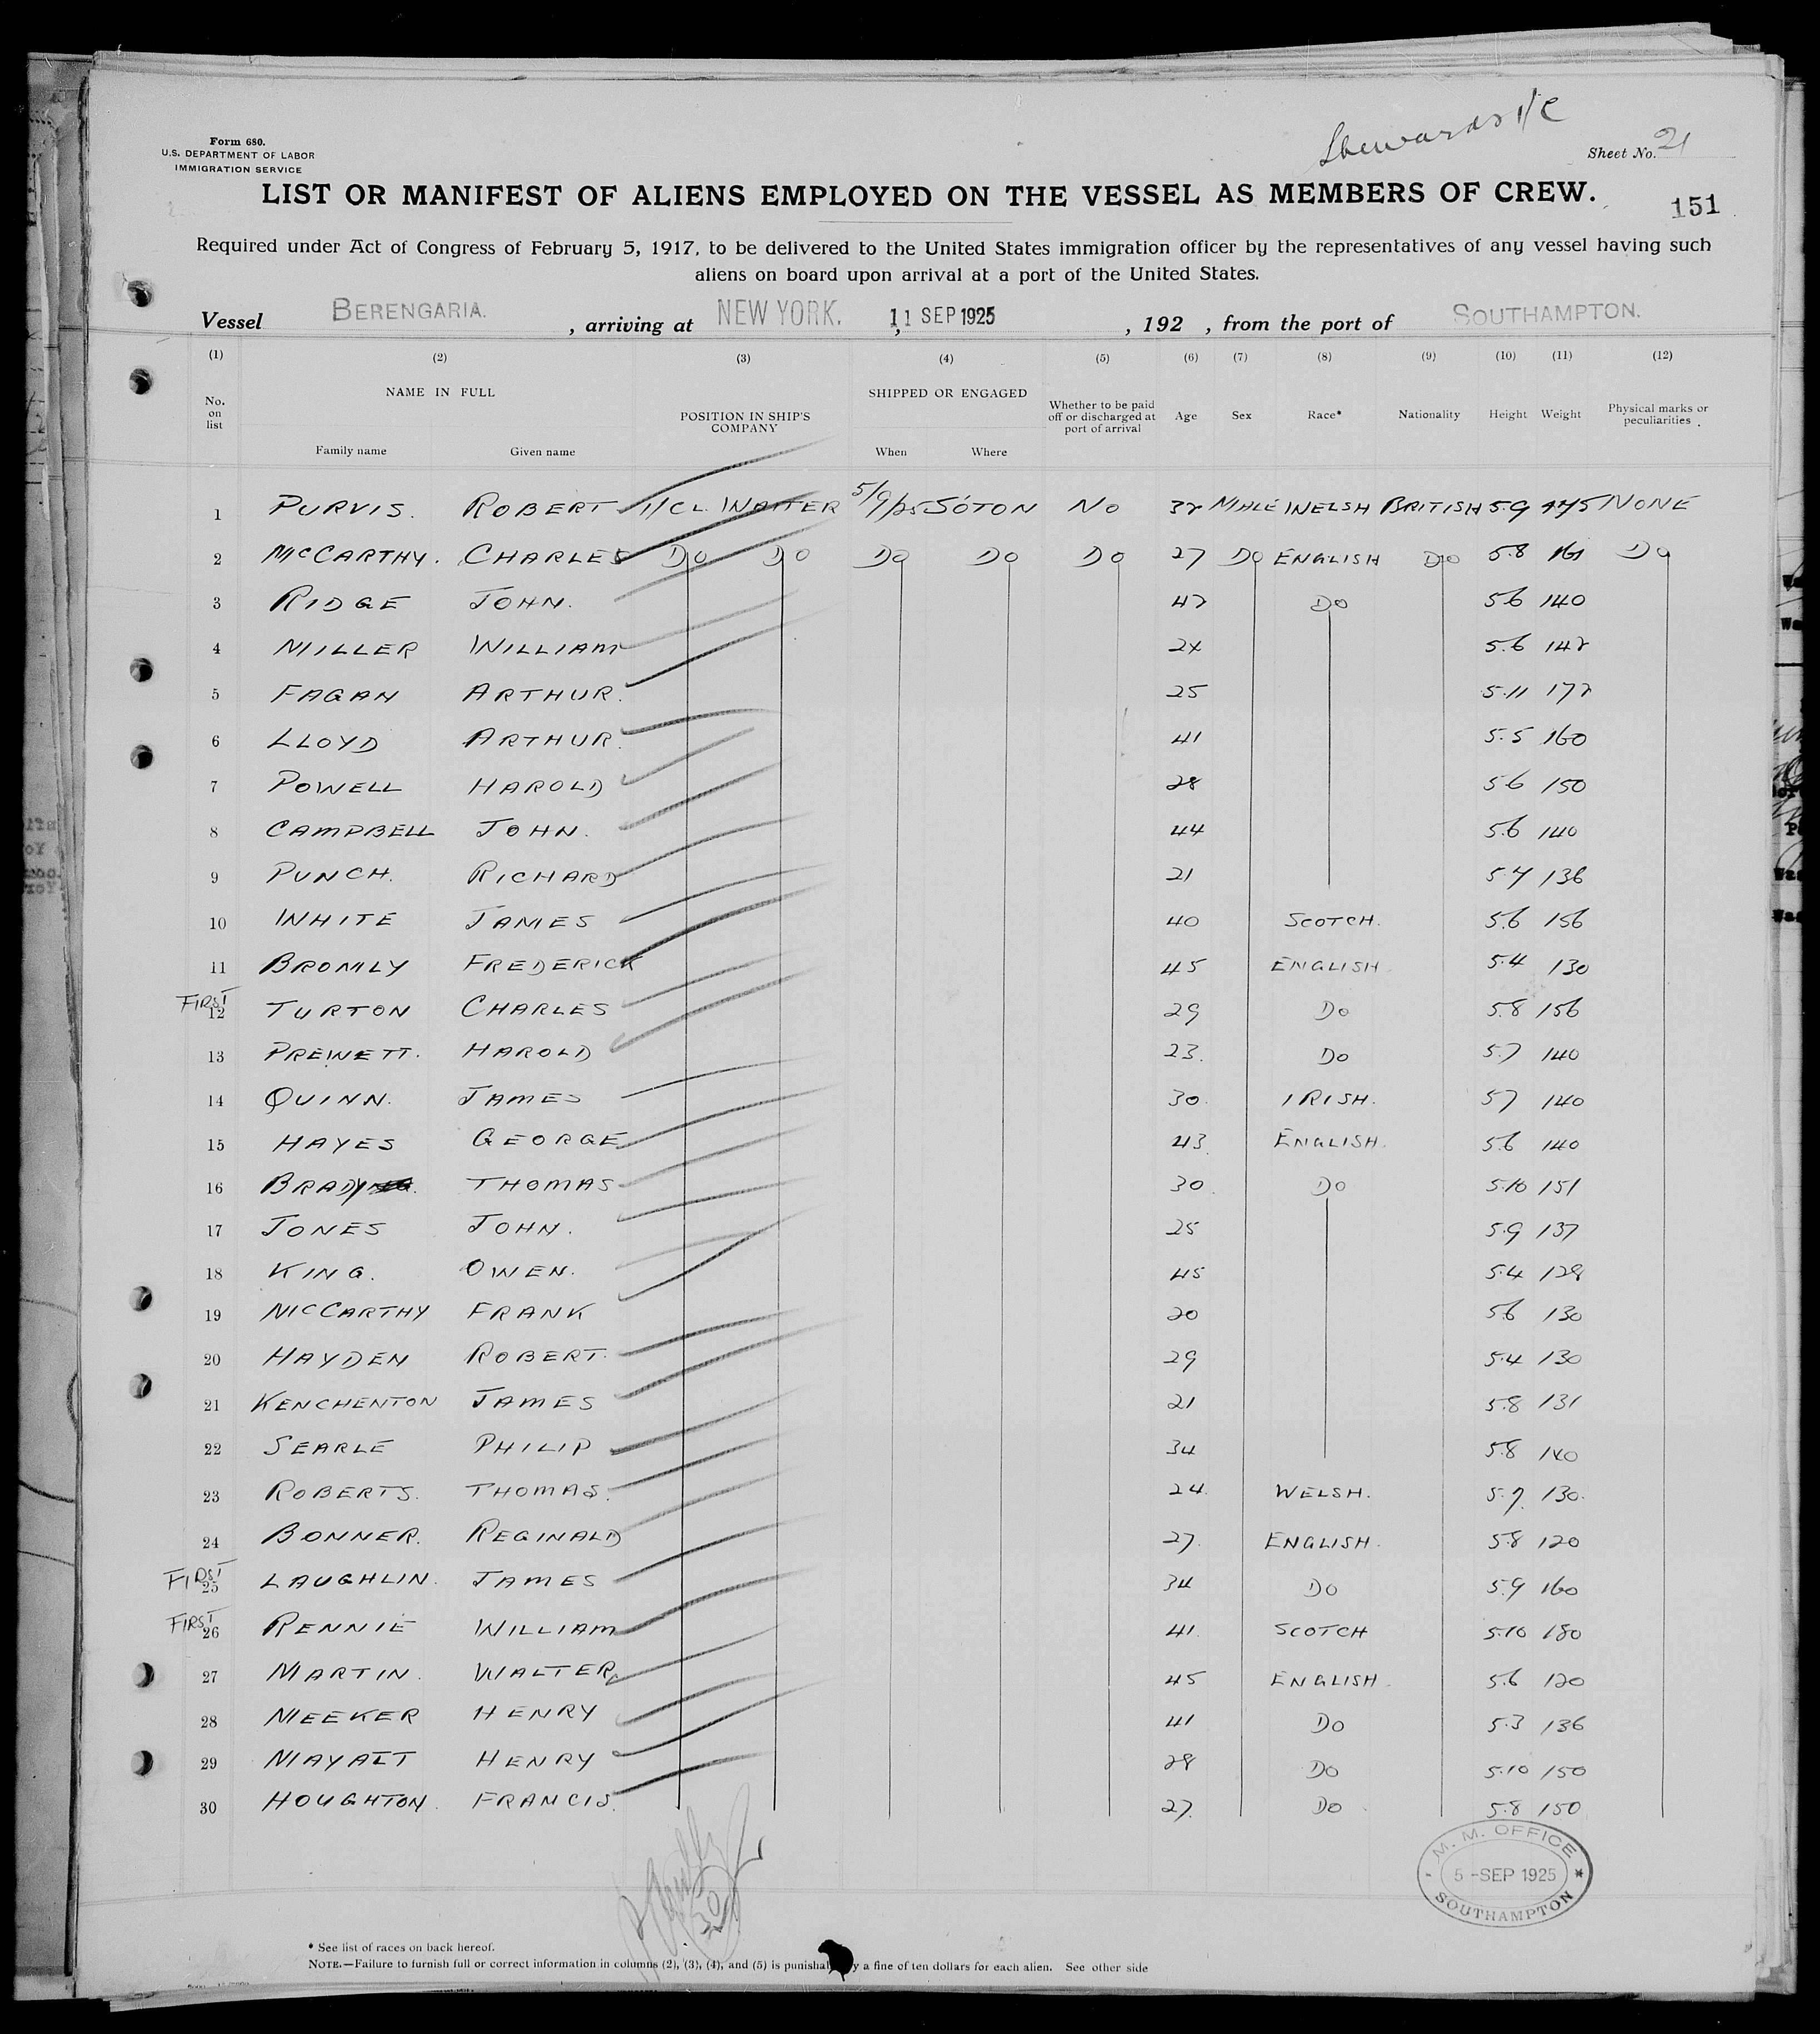 Stewards 1/C
Form 680.
U.S. DEPARTMENT OF LABOR
IMMIGRATION SERVICE
Sheet No. 21
LIST OR MANIFEST OF ALIENS EMPLOYED ON THE VESSEL AS MEMBERS OF CREW.
151
Required under Act of Congress of February 5, 1917, to be delivered to the United States immigration officer by the representatives of any vessel having such
aliens on board upon arrival at a port of the United States.
Vessel BERENGARIA. , arriving at NEW YORK. 11 SEP 1925 , 192 , from the port of SOUTHAMPTON.
(1) (2) (3) (4) (5) (6) (7) (8) (9) (10) (11) (12)
No. on list NAME IN FULL Family name Given name POSITION IN SHIP'S COMPANY SHIPPED OR ENGAGED When Where Whether to be paid off or discharged at port of arrival Age Sex Race* Nationality Height Weight Physical marks or peculiarities
1 PURVIS. ROBERT 1/CL. WAITER 5/9/25 S'OTON NO 32 MALE WELSH BRITISH 5.9 175 NONE
2 McCARTHY. CHARLES DO DO DO DO DO 27 DO ENGLISH DO 5.8 161 DO
3 RIDGE JOHN. 42 DO 5.6 140
4 MILLER WILLIAM 24 5.6 142
5 FAGAN ARTHUR. 25 5.11 172
6 LLOYD ARTHUR. 41 5.5 160
7 POWELL HAROLD 28 5.6 150
8 CAMPBELL JOHN. 44 5.6 140
9 PUNCH. RICHARD 21 5.7 136
10 WHITE JAMES 40 SCOTCH. 5.6 156
11 BROMLY FREDERICK 45 ENGLISH. 5.4 130
FIRST 12 TURTON CHARLES 29 DO 5.8 156
13 PREWETT. HAROLD 23. DO 5.7 140
14 QUINN. JAMES 30. IRISH. 5.7 140
15 HAYES GEORGE 43. ENGLISH. 5.6 140
16 BRADY THOMAS 30. DO 5.10 151
17 JONES JOHN. 25 5.9 137
18 KING. OWEN. 45 5.4 128
19 McCARTHY FRANK 20 5.6 130
20 HAYDEN ROBERT. 29 5.4 130
21 KENCHENTON JAMES 21 5.8 131
22 SEARLE PHILIP 34 5.8 140
23 ROBERTS. THOMAS. 24. WELSH. 5.7. 130.
24 BONNER. REGINALD 27. ENGLISH. 5.8 120
FIRST 25 LAUGHLIN. JAMES 34 DO 5.9 160
FIRST 26 RENNIE WILLIAM 41. SCOTCH 5.10 180
27 MARTIN. WALTER 45 ENGLISH. 5.6 120
28 MEEKER HENRY 41 DO 5.3 136
29 MAYATT HENRY 28 DO 5.10 150
30 HOUGHTON. FRANCIS. 27. DO 5.8 150
M. M. OFFICE
5 -SEP 1925
SOUTHAMPTON
* See list of races on back hereof.
NOTE.—Failure to furnish full or correct information in columns (2), (3), (4), and (5) is punishable by a fine of ten dollars for each alien. See other side